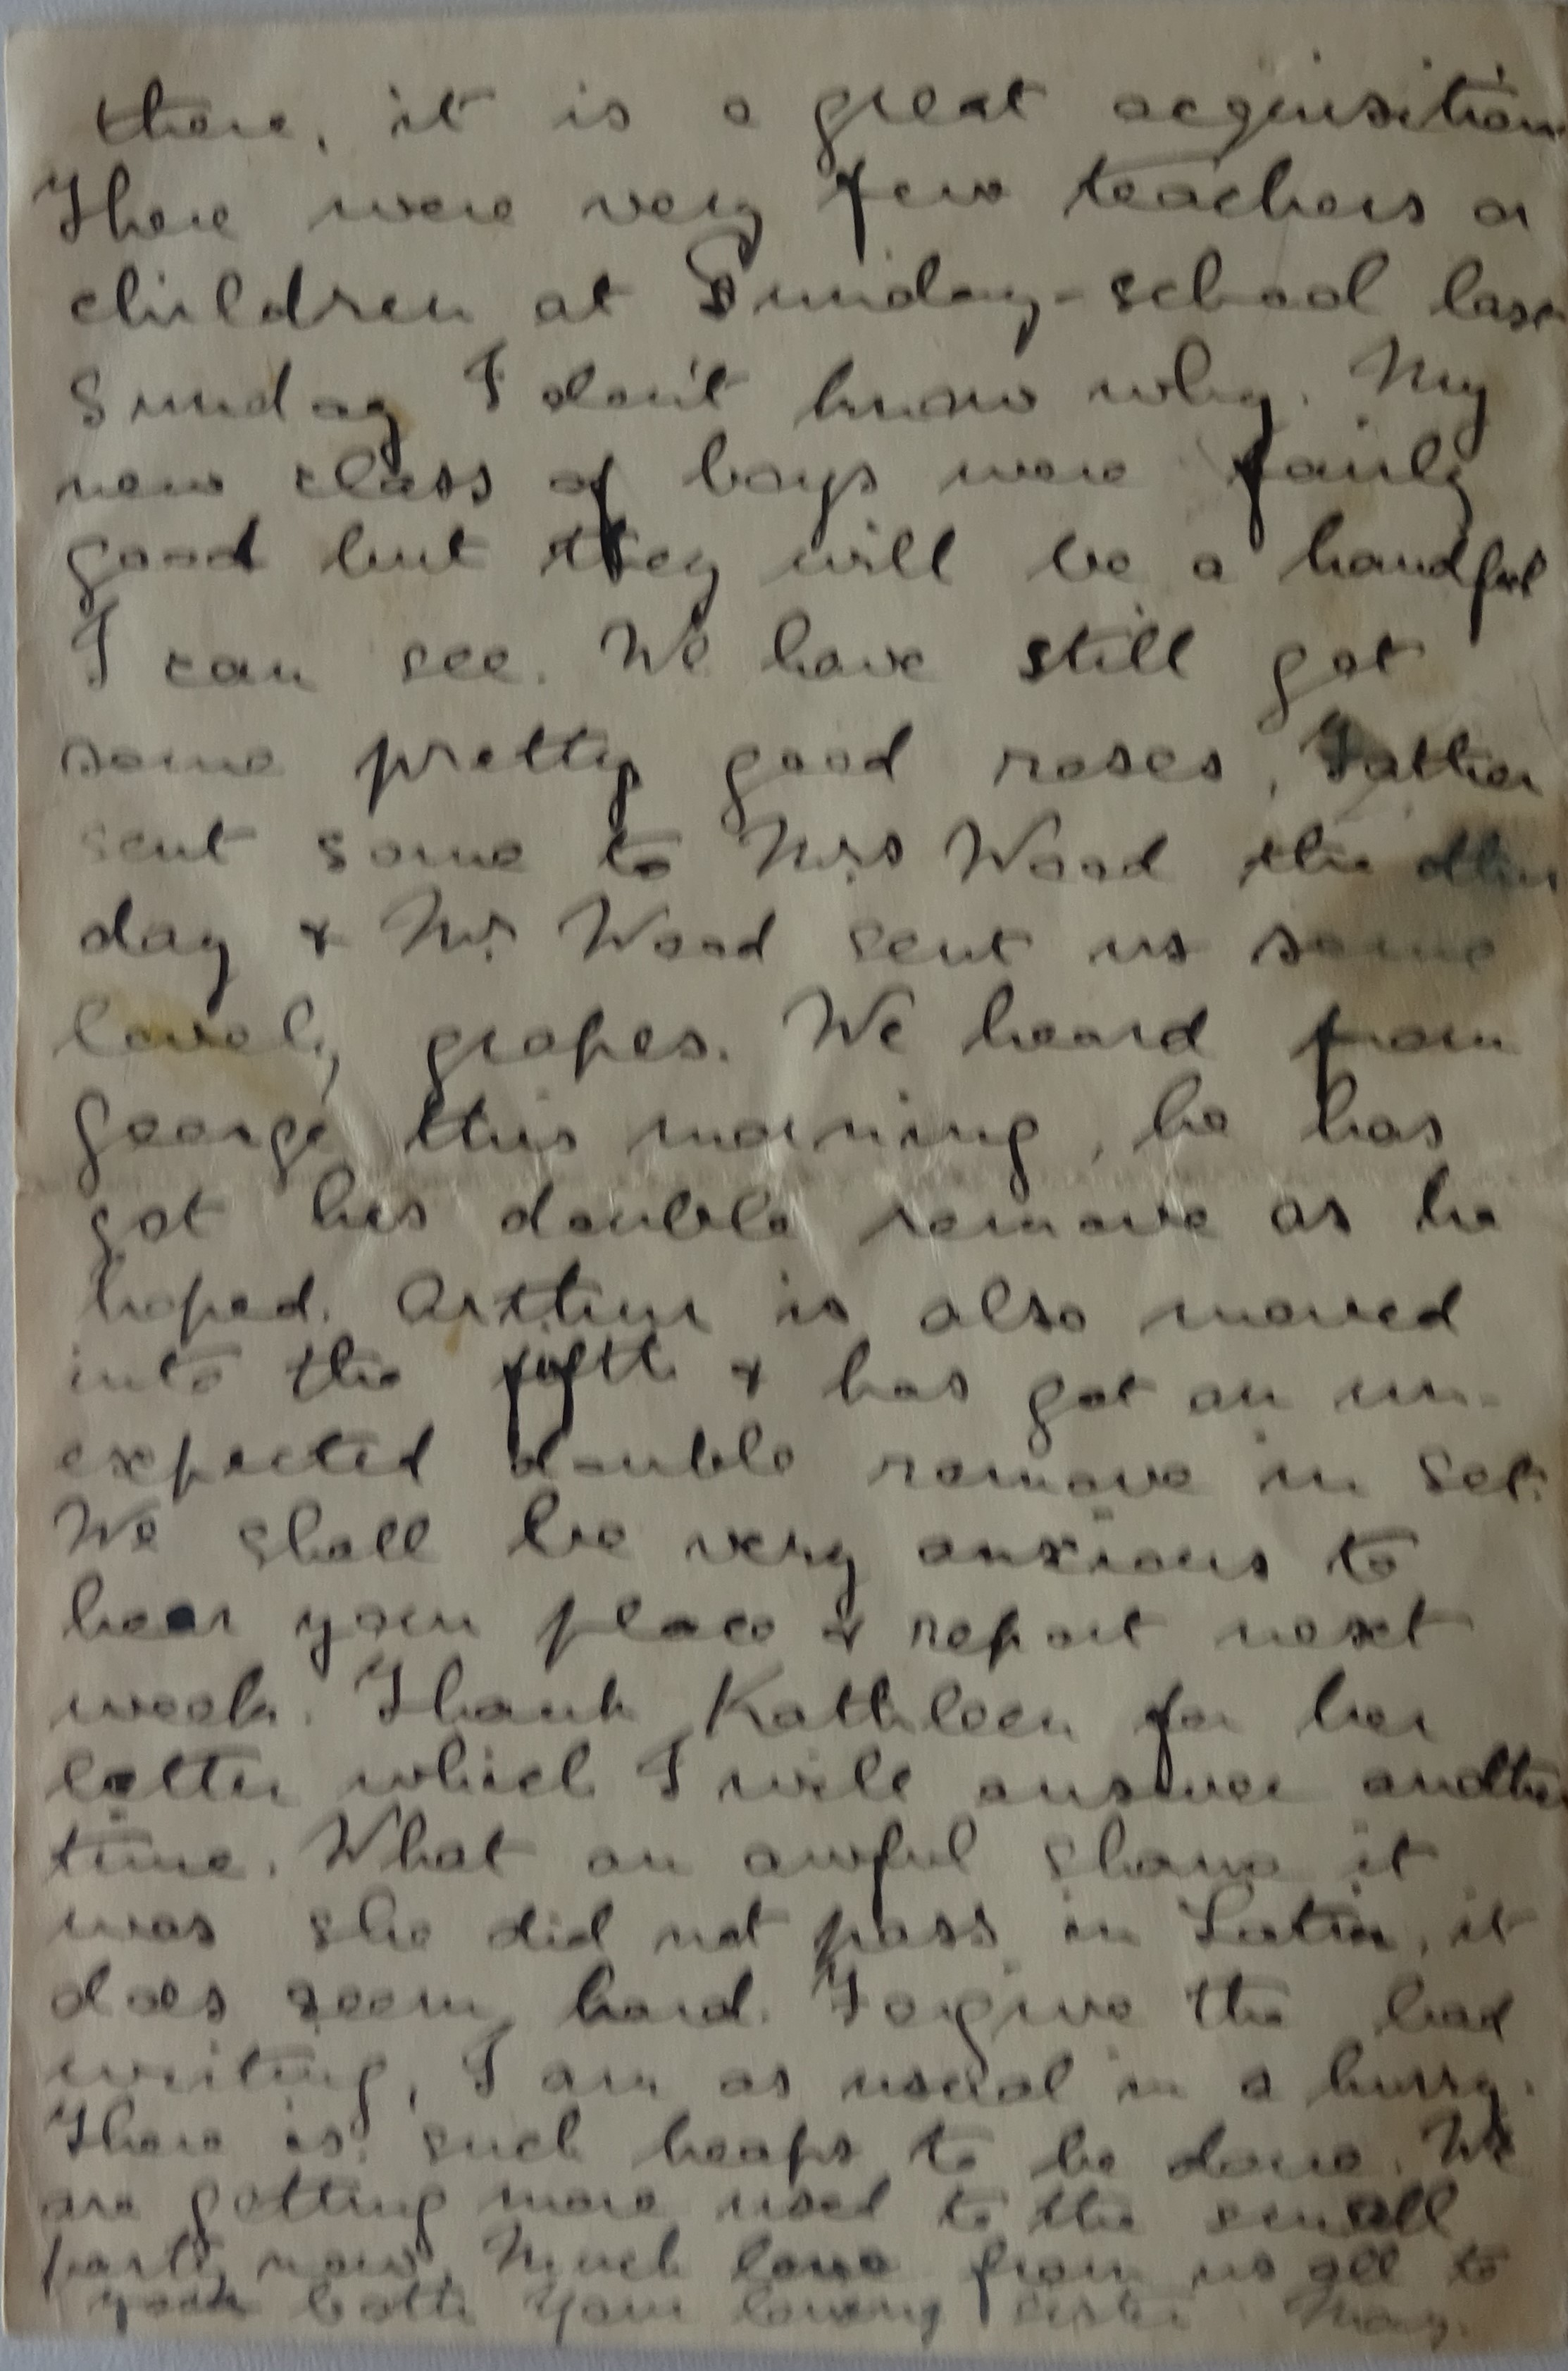 there, it is a great acquisition
There were very few teachers or
children at Sunday-school last
Sunday I don't know why. My
new class of boys were fairly
good but they will be a handful
I can see. We have still got
some pretty good roses, Father
sent some to Mrs Wood the other
day & Mr. Wood sent us some
lovely grapes. We heard from
George this morning, he has
got his double remove as he
hoped. Arthur is also moved
into the fifth & has got an un-
expected double remove in set.
We shall be very anxious to
hear your place & report next
week. Thank Kathleen for her
letter which I will answer another
time. What an awful shame it
was she did not pass in Latin, it
does seem hard. Forgive the bad
writing, I am as usual in a hurry.
There is such heaps to be done. We
are getting more used to the small
party now. Much love from us all to
you both Your loving sister May.